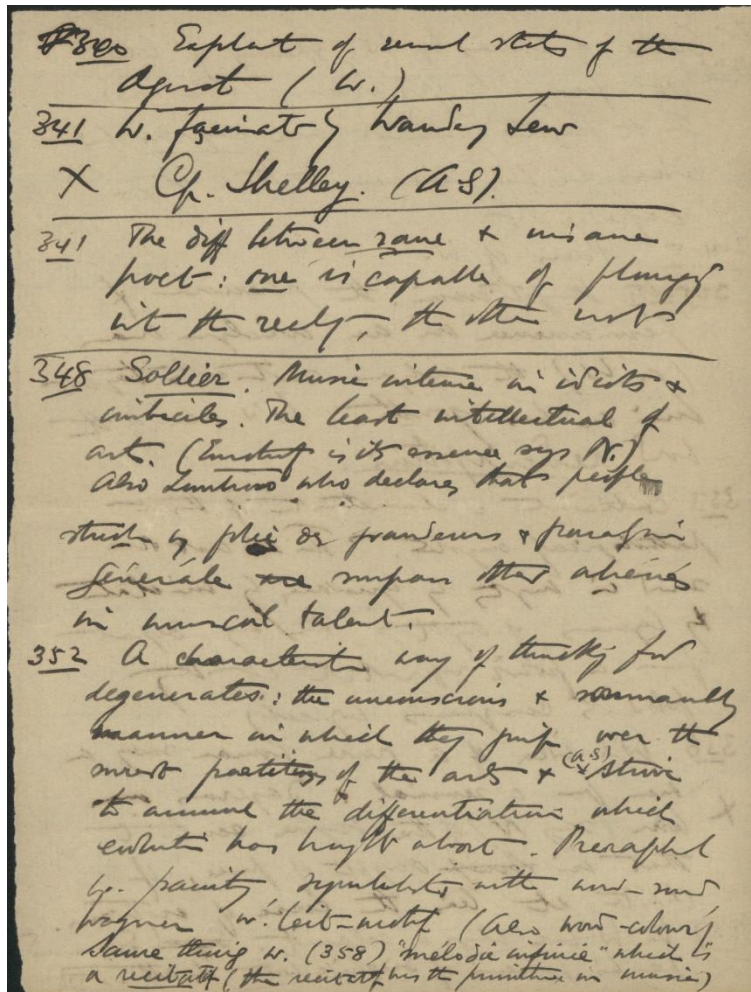 340 Exploit of sexual states of the
Agnost (W.)
341 W. fascinated by Wandering Jew
X Cp. Shelley. (A.S).
341 The diff between sane & insane
poet: one is capable of plunging
into the reality, the other not
348 Sollier. Music intense in idiots &
imbeciles. The least intellectual of
art. (Emotion is its essence says N.)
Also Lombroso who declares that people
struck by folie des grandeurs & paralysie
générale are surpass other aliénés
in musical talent.
352 A characteristic way of thinking for
degenerates: the unconscious &
manner in which they jump over the
partitions of the arts & (A.S) strive
to annul the differentiation which
evolution has brought about.
symbolists with
Wagner w. leit-motif (Also word-colours)
Same thing w. (358) "mélodie infinie" which is
a recitatif (the recitatif was the primitive in music)